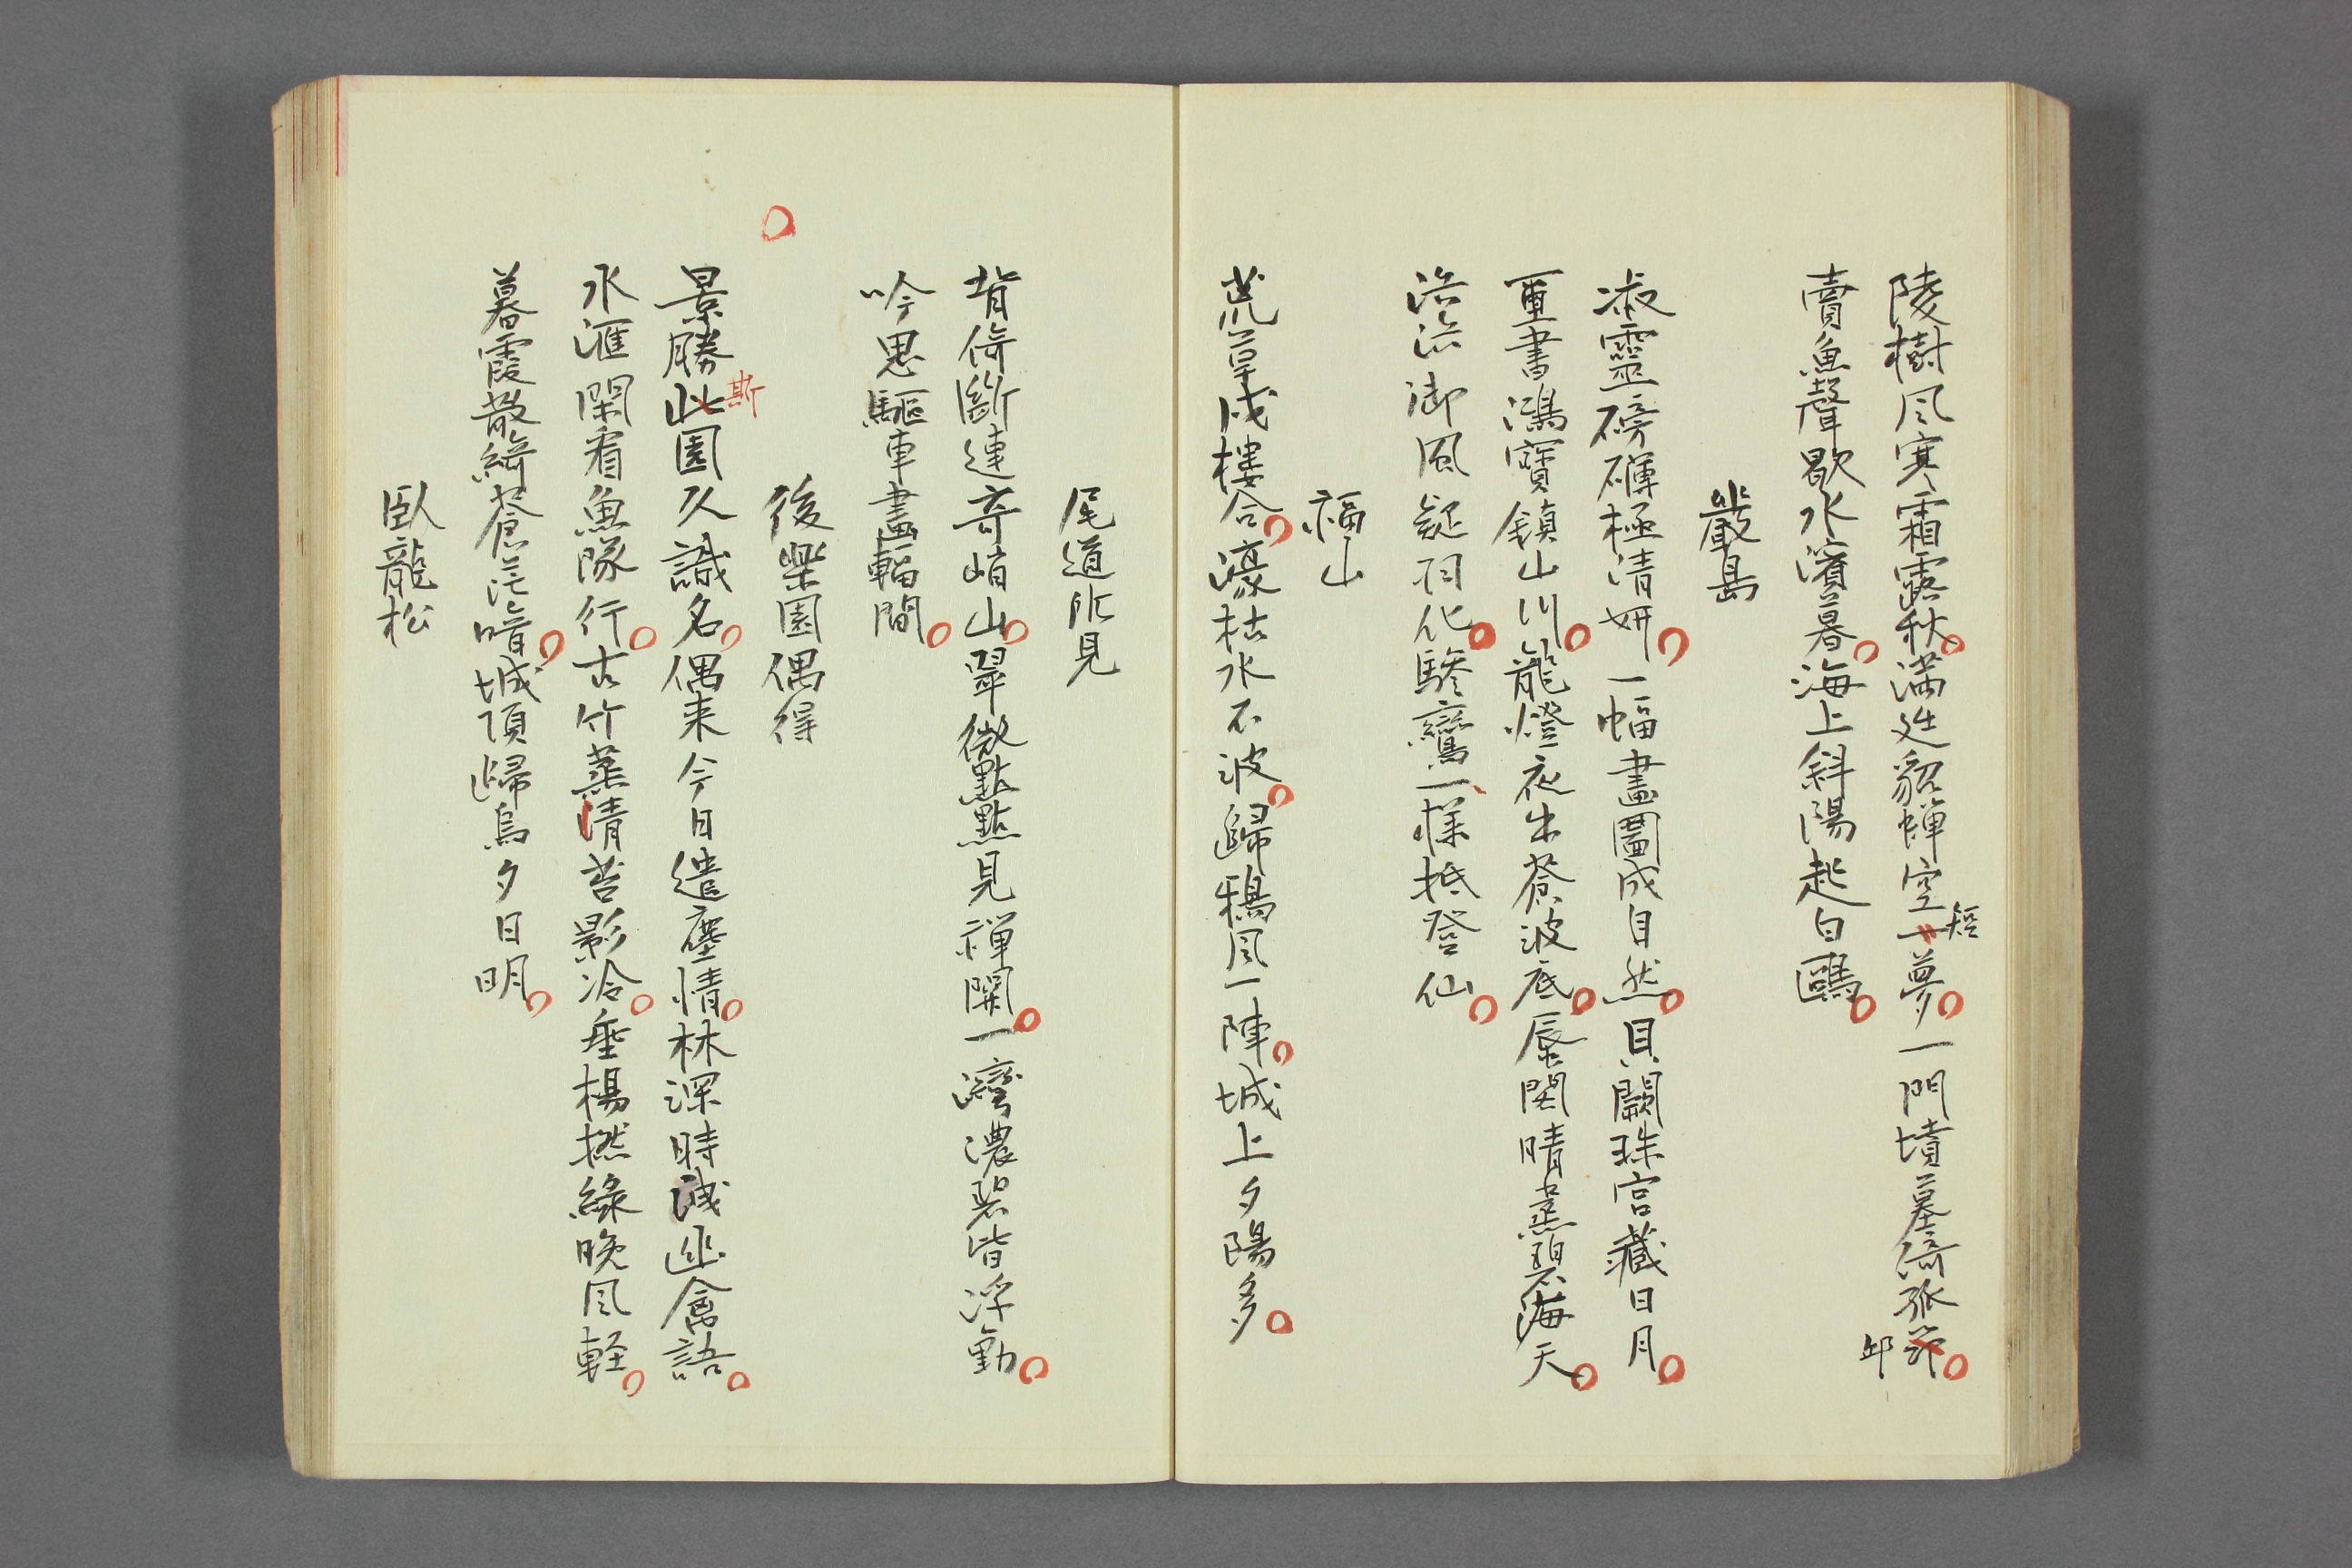 陵樹風寒霜露秋満廷貂蝉空一夢一門墳墓倚孤節
短
邱
賣魚聲歇水濱暮海上斜陽起白鷗
嚴島
淑靈磅礴極清妍一幅畫圖成自然貝闕珠宮藏日月
璽書鴻寶鎮山川龍燈夜出蒼波底蜃閣晴蒸碧海天
浩浩御風疑羽化驂鸞一様抵登仙
福山
荒草戍樓合濠枯水不波歸鴉風一陣城上夕陽多
尾道所見
背倚斷連奇峭山翠微點點見禅関一灣濃碧皆浮動
吟思驅車畫輻間
後楽園偶得
景勝此園久識名偶来今日遣塵情林深時誠幽禽語
斯
水滙閑看魚隊行古竹蒸清苔影冷垂楊撚綠晩風軽
暮霞散綺蒼茫暗城頂歸烏夕日明
臥龍松